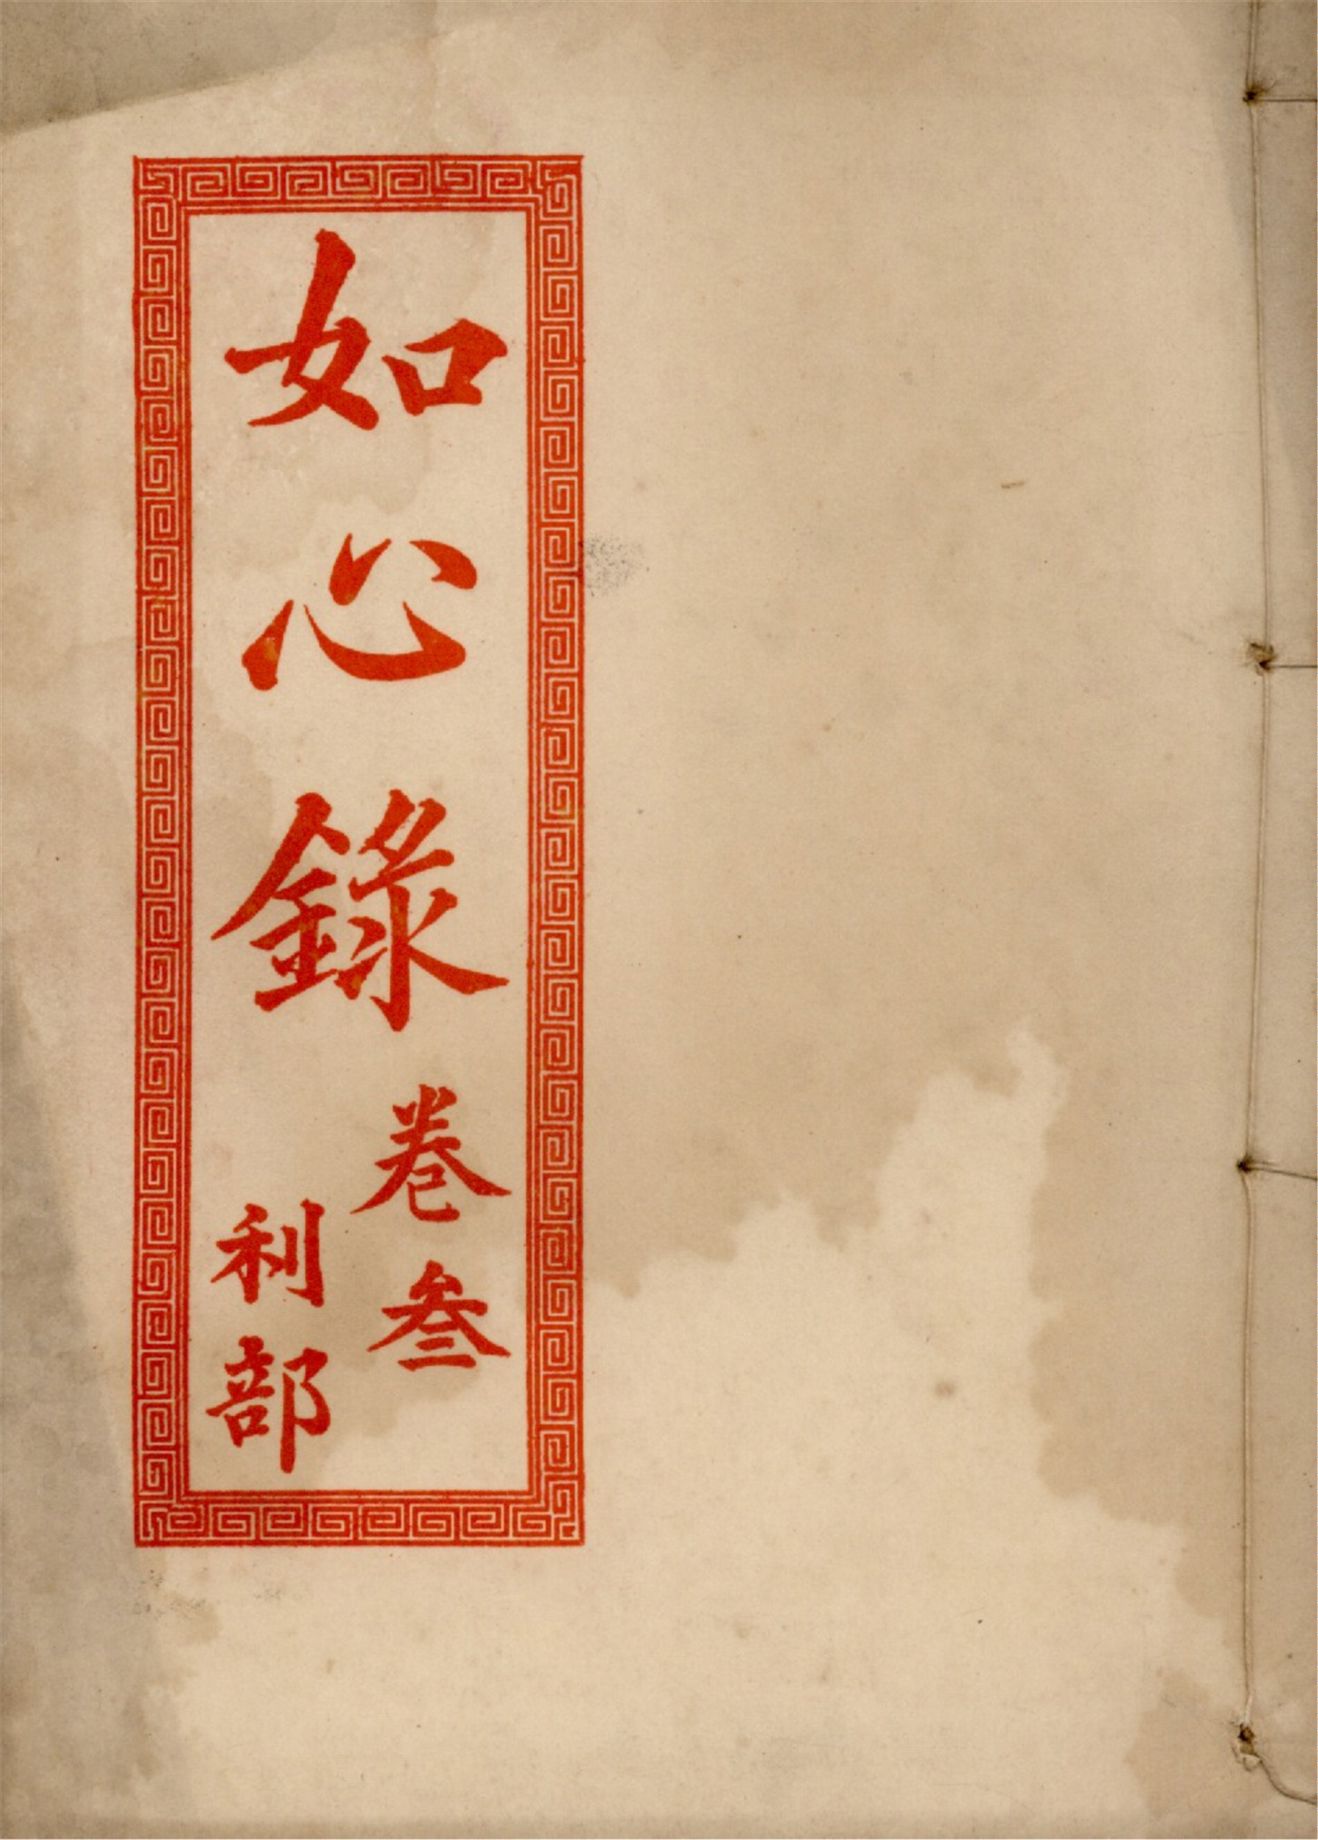 如心錄
卷叁
利部